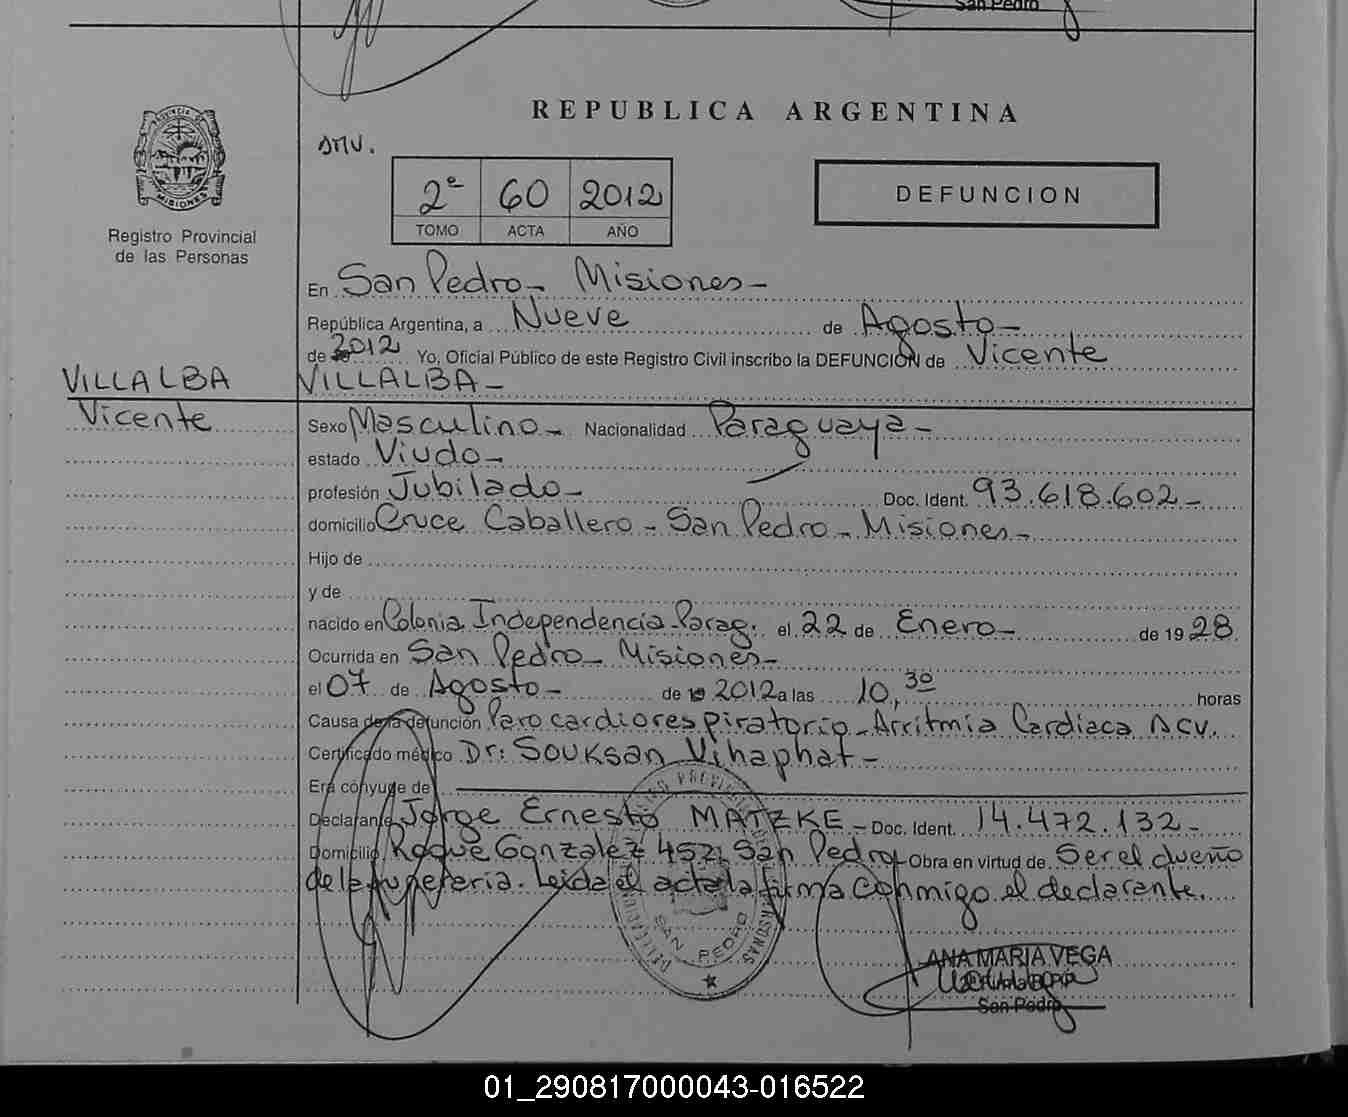 San Pedro
REPUBLICA ARGENTINA
PROVINCIA DE
MISIONES
Registro Provincial
de las Personas
2º 60 2012
TOMO ACTA AÑO
DEFUNCION
En San Pedro - Misiones -
República Argentina, a Nueve de Agosto -
de 2012 Yo, Oficial Público de este Registro Civil inscribo la DEFUNCIÓN de Vicente
VILLALBA VILLALBA -
Vicente Sexo Masculino - Nacionalidad Paraguaya -
estado Viudo -
profesión Jubilado - Doc. Ident. 93.618.602 -
domicilio Cruce Caballero - San Pedro - Misiones -
Hijo de
y de
nacido en Colonia Independencia - Parag. el 22 de Enero - de 1928
Ocurrida en San Pedro - Misiones -
el 07 de Agosto - de 2012 a las 10,30 horas
Causa de la defunción Paro cardiorespiratorio - Arritmia Cardiaca ACV.
Certificado médico Dr: Souksan Vihaphat -
Era cónyuge de
Declarante Jorge Ernesto MATZKE - Doc. Ident. 14.472.132 -
Domicilio Roque Gonzalez 452, San Pedro - Obra en virtud de Ser el dueño
de la funeraria. Leida el acta la firma conmigo el declarante.
SAN PEDRO
ANA MARIA VEGA
San Pedro
01_290817000043-016522